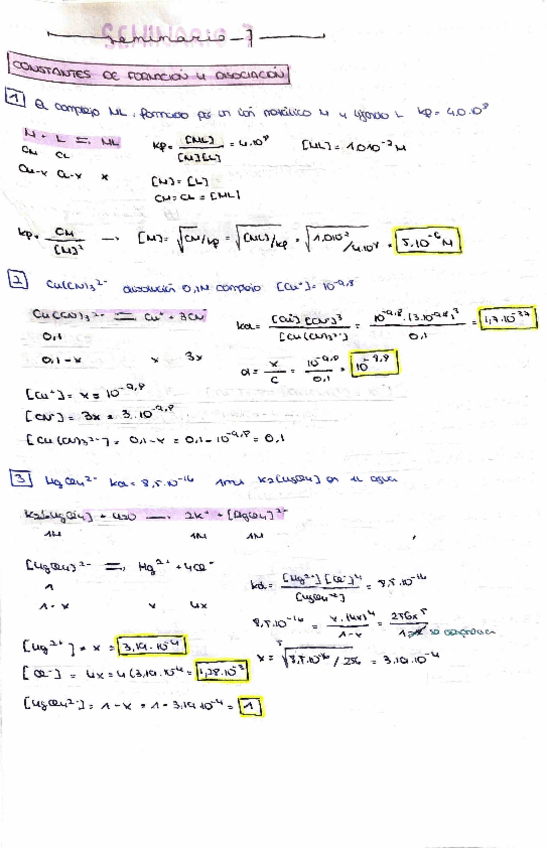 Seminario - 7
CONSTANTES DE FORMACIÓN Y DISOCIACIÓN
1 El complejo ML, formado por un ión metálico M y ligando L Kp = 4.0·10⁸
M + L ⇌ ML
CM CL
CM-x CL-x x
Kp = [ML] / [M][L] = 4·10⁸
[ML] = 1·0·10⁻² M
[M] = [L]
CM = CL = [ML]
Kp = CM / [M]² → [M] = √CM/Kp = √[ML]/Kp = √1,0·10⁻²/4·10⁸ = 5·10⁻⁶ M
2 Cu(CN)₃²⁻ disolución 0,1M complejo [Cu⁺] = 10⁻⁹·⁸
Cu(CN)₃²⁻ ⇌ Cu⁺ + 3CN
0,1
0,1-x x 3x
Kd = [Cu⁺][CN]³ / [Cu(CN)₃²⁻] = 10⁻⁹·⁸·(3·10⁻⁹·⁸)³ / 0,1 = 1,7·10⁻³⁷
α = x / C = 10⁻⁹·⁸ / 0,1 = 10⁻⁸·⁸
[Cu⁺] = x = 10⁻⁹·⁸
[CN⁻] = 3x = 3·10⁻⁹·⁸
[Cu(CN)₃²⁻] = 0,1-x = 0,1-10⁻⁹·⁸ = 0,1
3 HgCl₄²⁻ Kd = 8,5·10⁻¹⁶ 1 mol K₂[HgCl₄] en 1L agua
K₂[HgCl₄] + H₂O → 2K⁺ + [HgCl₄]²⁻
1M 1M 1M
[HgCl₄]²⁻ ⇌ Hg²⁺ + 4Cl⁻
1
1-x x 4x
Kd = [Hg²⁺][Cl⁻]⁴ / [HgCl₄²⁻] = 8,5·10⁻¹⁶
8,5·10⁻¹⁶ = x·(4x)⁴ / 1-x = 256x⁵ / 1-x
x = ⁵√8,5·10⁻¹⁶/256 = 3,19·10⁻⁴
[Hg²⁺] = x = 3,19·10⁻⁴
[Cl⁻] = 4x = 4(3,19·10⁻⁴ = 1,28·10⁻³
[HgCl₄²⁻] = 1-x = 1-3,19·10⁻⁴ = 1